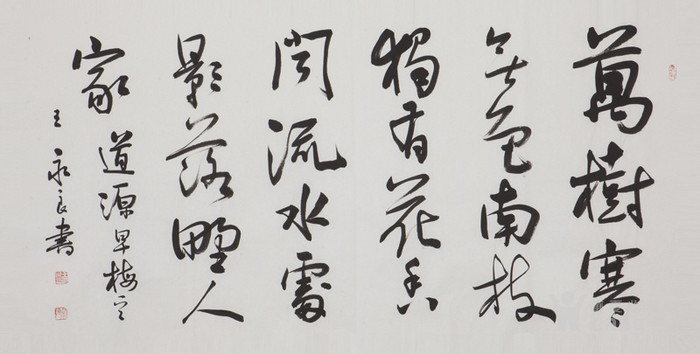 萬樹寒
無色南枝
獨有花香
聞流水處
影落野人
家
道源早梅
王永良書